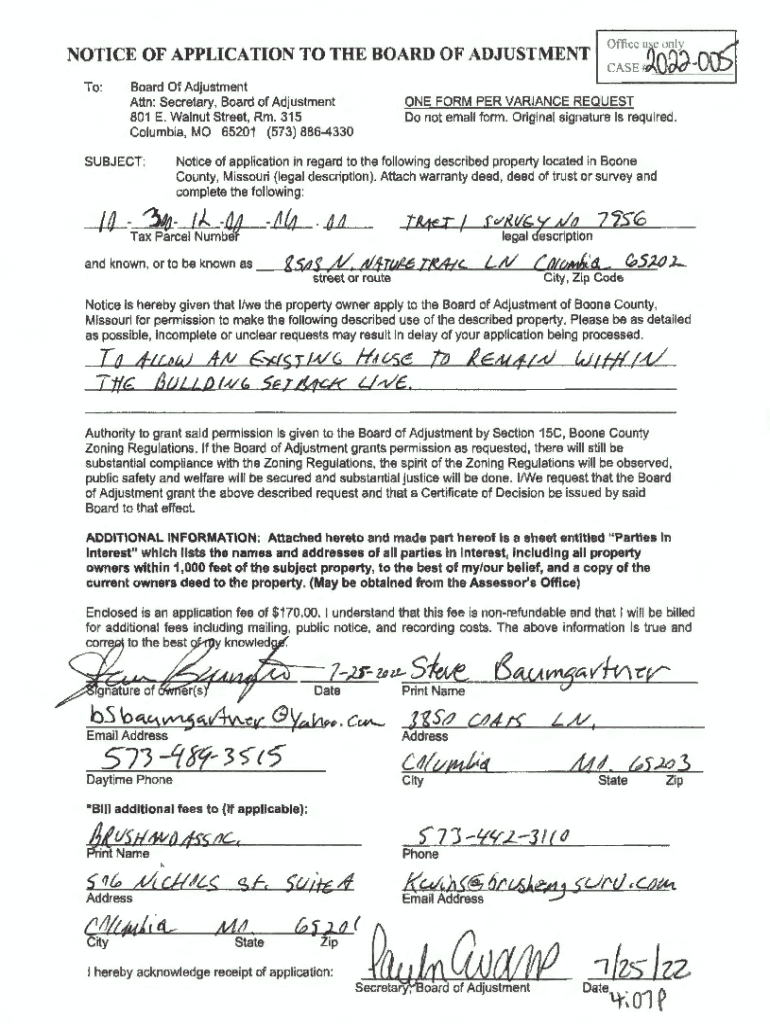 NOTICE OF APPLICATION TO THE BOARD OF ADJUSTMENT
Office use only
CASE # 2022-005
To: Board Of Adjustment
Attn: Secretary, Board of Adjustment
801 E. Walnut Street, Rm. 315
Columbia, MO 65201 (573) 886-4330
ONE FORM PER VARIANCE REQUEST
Do not email form. Original signature is required.
SUBJECT: Notice of application in regard to the following described property located in Boone
County, Missouri (legal description). Attach warranty deed, deed of trust or survey and
complete the following:
TRACT 1 SURVEY NO 7956
Tax Parcel Number legal description
and known, or to be known as 8505 N. NATURE TRAIL LN Columbia 65202
street or route City, Zip Code
Notice is hereby given that I/we the property owner apply to the Board of Adjustment of Boone County,
Missouri for permission to make the following described use of the described property. Please be as detailed
as possible, incomplete or unclear requests may result in delay of your application being processed.
TO ALLOW AN EXISTING HOUSE TO REMAIN WITHIN
THE BUILDING SETBACK LINE.
Authority to grant said permission is given to the Board of Adjustment by Section 15C, Boone County
Zoning Regulations. If the Board of Adjustment grants permission as requested, there will still be
substantial compliance with the Zoning Regulations, the spirit of the Zoning Regulations will be observed,
public safety and welfare will be secured and substantial justice will be done. I/We request that the Board
of Adjustment grant the above described request and that a Certificate of Decision be issued by said
Board to that effect.
ADDITIONAL INFORMATION: Attached hereto and made part hereof is a sheet entitled "Parties in
Interest" which lists the names and addresses of all parties in interest, including all property
owners within 1,000 feet of the subject property, to the best of my/our belief, and a copy of the
current owners deed to the property. (May be obtained from the Assessor's Office)
Enclosed is an application fee of $170.00. I understand that this fee is non-refundable and that I will be billed
for additional fees including mailing, public notice, and recording costs. The above information is true and
correct to the best of my knowledge.
7-25-2022 Steve Baumgartner
Signature of owner(s) Date Print Name
bsbaumgartner@yahoo.com 3850 COATS LN.
Email Address Address
573-489-3515 Columbia MO. 65203
Daytime Phone City State Zip
*Bill additional fees to (if applicable):
BRUSH AND ASSOC. 573-442-3110
Print Name Phone
506 NICHOLS St. SUITE A
Address Email Address
Columbia MO. 65201
City State Zip
I hereby acknowledge receipt of application: 7/25/22
Secretary, Board of Adjustment Date
4:07P